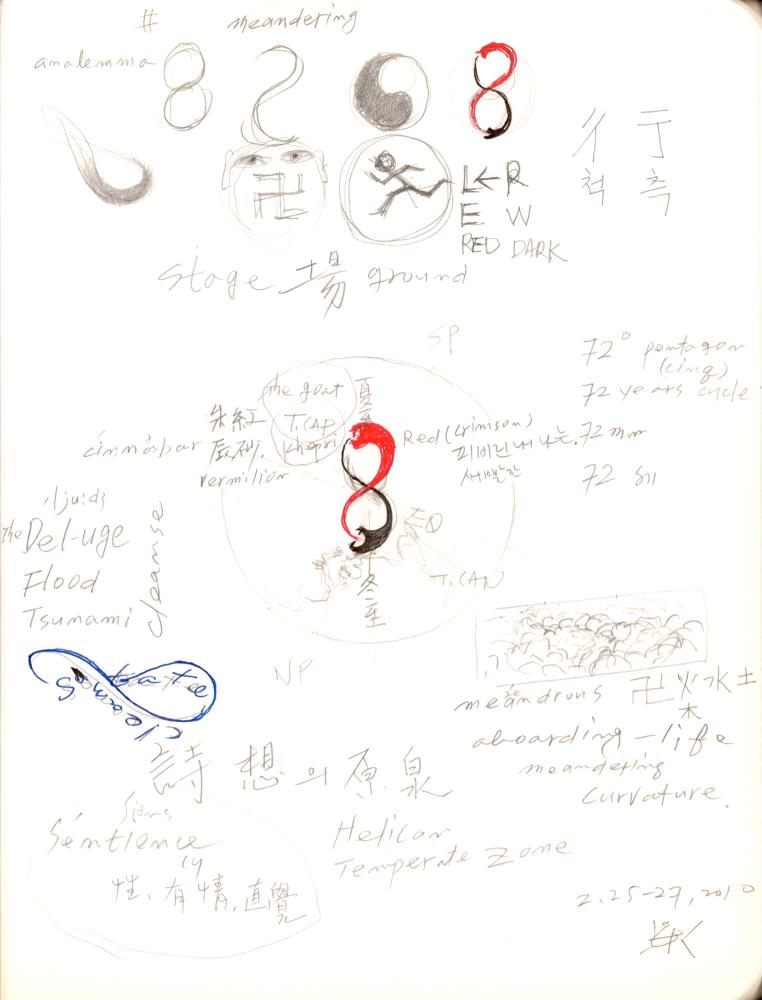 # meandering
analemma
彳 亍
척 측
卍
L←R
E W
RED DARK
stage 場 ground
SP
72° pentagon
(cinq)
72 years cycle
72 mm
72
the goat
T.CAP
Khepri
夏至
朱紅
辰砂.
cinnabar
vermilion
Red (crimson)
피비린내 나는
새빨간
EQ
T.CAN
冬至
NP
liquids
the Del-uge
Flood
Tsunami
cleanse
meandrous 卍 火 水 土
木
aboarding-life
meandering
curvature.
詩想의 原泉
signs
Sentience
性, 有情, 直覺
Helicon
Temperate zone
2.25-27, 2010